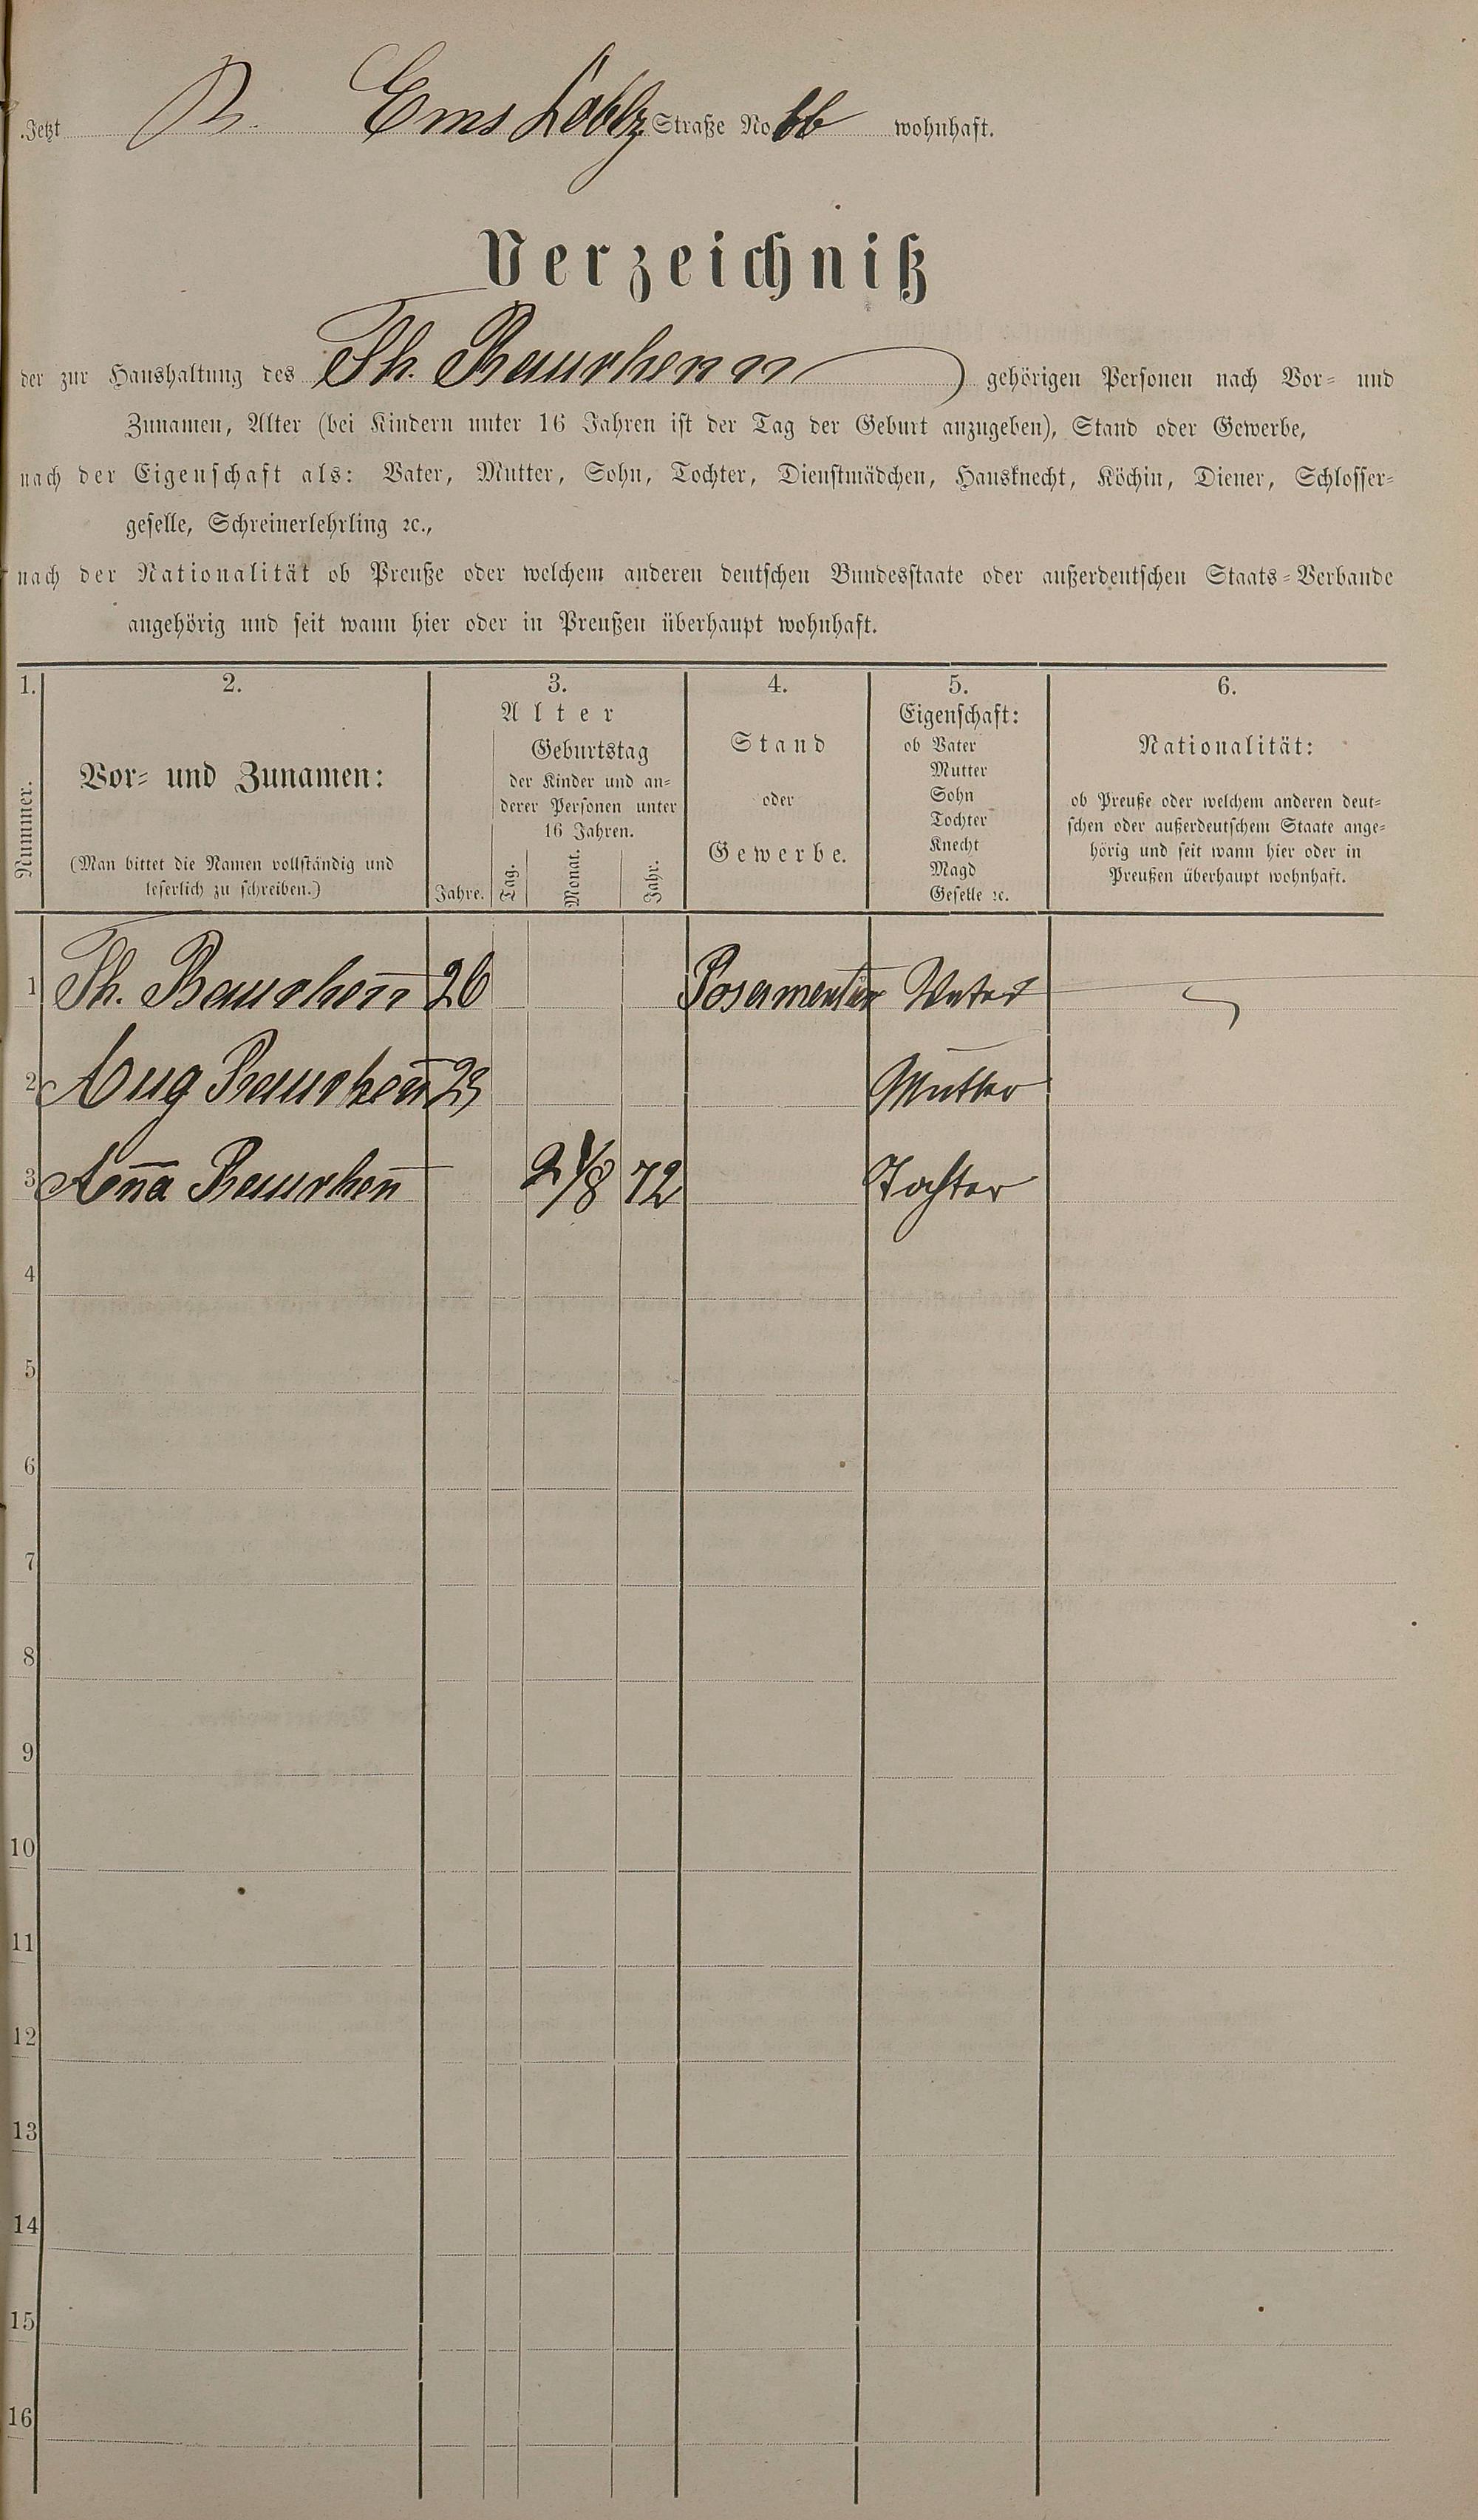 Jetzt Ems Coblz Straße No 66 wohnhaft.
Verzeichniß
der zur Haushaltung des Th. Baurhenn gehörigen Personen nach Vor- und
Zunamen, Alter (bei Kindern unter 16 Jahren ist der Tag der Geburt anzugeben), Stand oder Gewerbe,
nach der Eigenschaft als: Vater, Mutter, Sohn, Tochter, Dienstmädchen, Hausknecht, Köchin, Diener, Schlosser-
geselle, Schreinerlehrling ꝛc.,
nach der Nationalität ob Preuße oder welchem anderen deutschen Bundesstaate oder außerdeutschen Staats-Verbande
angehörig und seit wann hier oder in Preußen überhaupt wohnhaft.
1. 2. 3. 4. 5. 6.
Nummer.
Vor- und Zunamen:
(Man bittet die Namen vollständig und
leserlich zu schreiben.)
Alter
Jahre.
Geburtstag
der Kinder und an-
derer Personen unter
16 Jahren.
Tag. Monat. Jahr.
Stand
oder
Gewerbe.
Eigenschaft:
ob Vater
Mutter
Sohn
Tochter
Knecht
Magd
Geselle ꝛc.
Nationalität:
ob Preuße oder welchem anderen deut-
schen oder außerdeutschem Staate ange-
hörig und seit wann hier oder in
Preußen überhaupt wohnhaft.
1 Th. Baurhen̅ 26 Posamentier Vater
2 Aug Baurhen̅ 23 Mutter
3 An̅a Baurhen̅ 21/8 72 Tochter
4
5
6
7
8
9
10
11
12
13
14
15
16